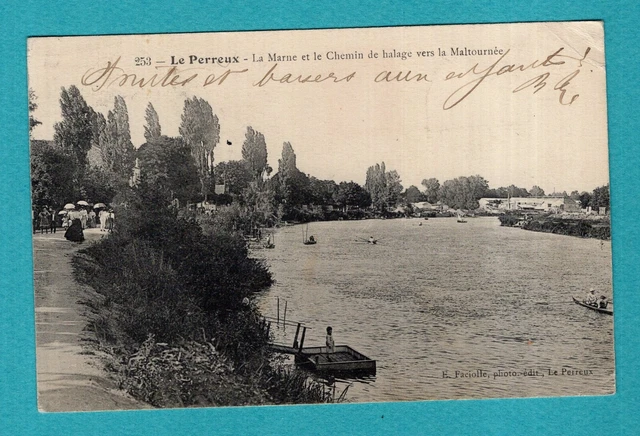 253 — Le Perreux - La Marne et le Chemin de halage vers la Maltournée
Amitiés et baisers aux enfants !
E. Faciolle, photo.-édit., Le Perreux